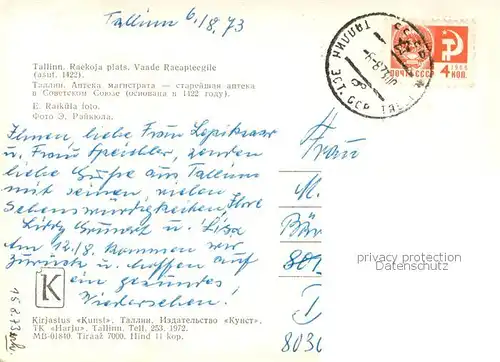 Tallinn 6./8. 73
Tallinn. Raekoja plats. Vaade Raeapteegile
(asut. 1422).
Таллин. Аптека магистрата — старейшая аптека
в Советском Союзе (основана в 1422 году).
E. Raiküla foto.
Фото Э. Райкюла.
ПОЧТА СССР
1966
4 КОП.
ТАЛЛИН
ЭСТ. ССР
Ihnen liebe Frau
u. Frau senden
liebe Grüße aus Tallinn
mit seinen vielen
Sehenswürdigkeiten Ihre
u. Lisa
Am 12./8. kommen wir
zurück u. hoffen auf
ein gesundes
Wiedersehen!
Frau
M.
Bär
privacy protection
Datenschutz
803
K
Kirjastus «Kunst», Таллин. Издательство «Кунст».
TK «Harju», Tallinn, Tell. 253. 1972.
MB-01840. Tiraaž 7000. Hind 11 kop.